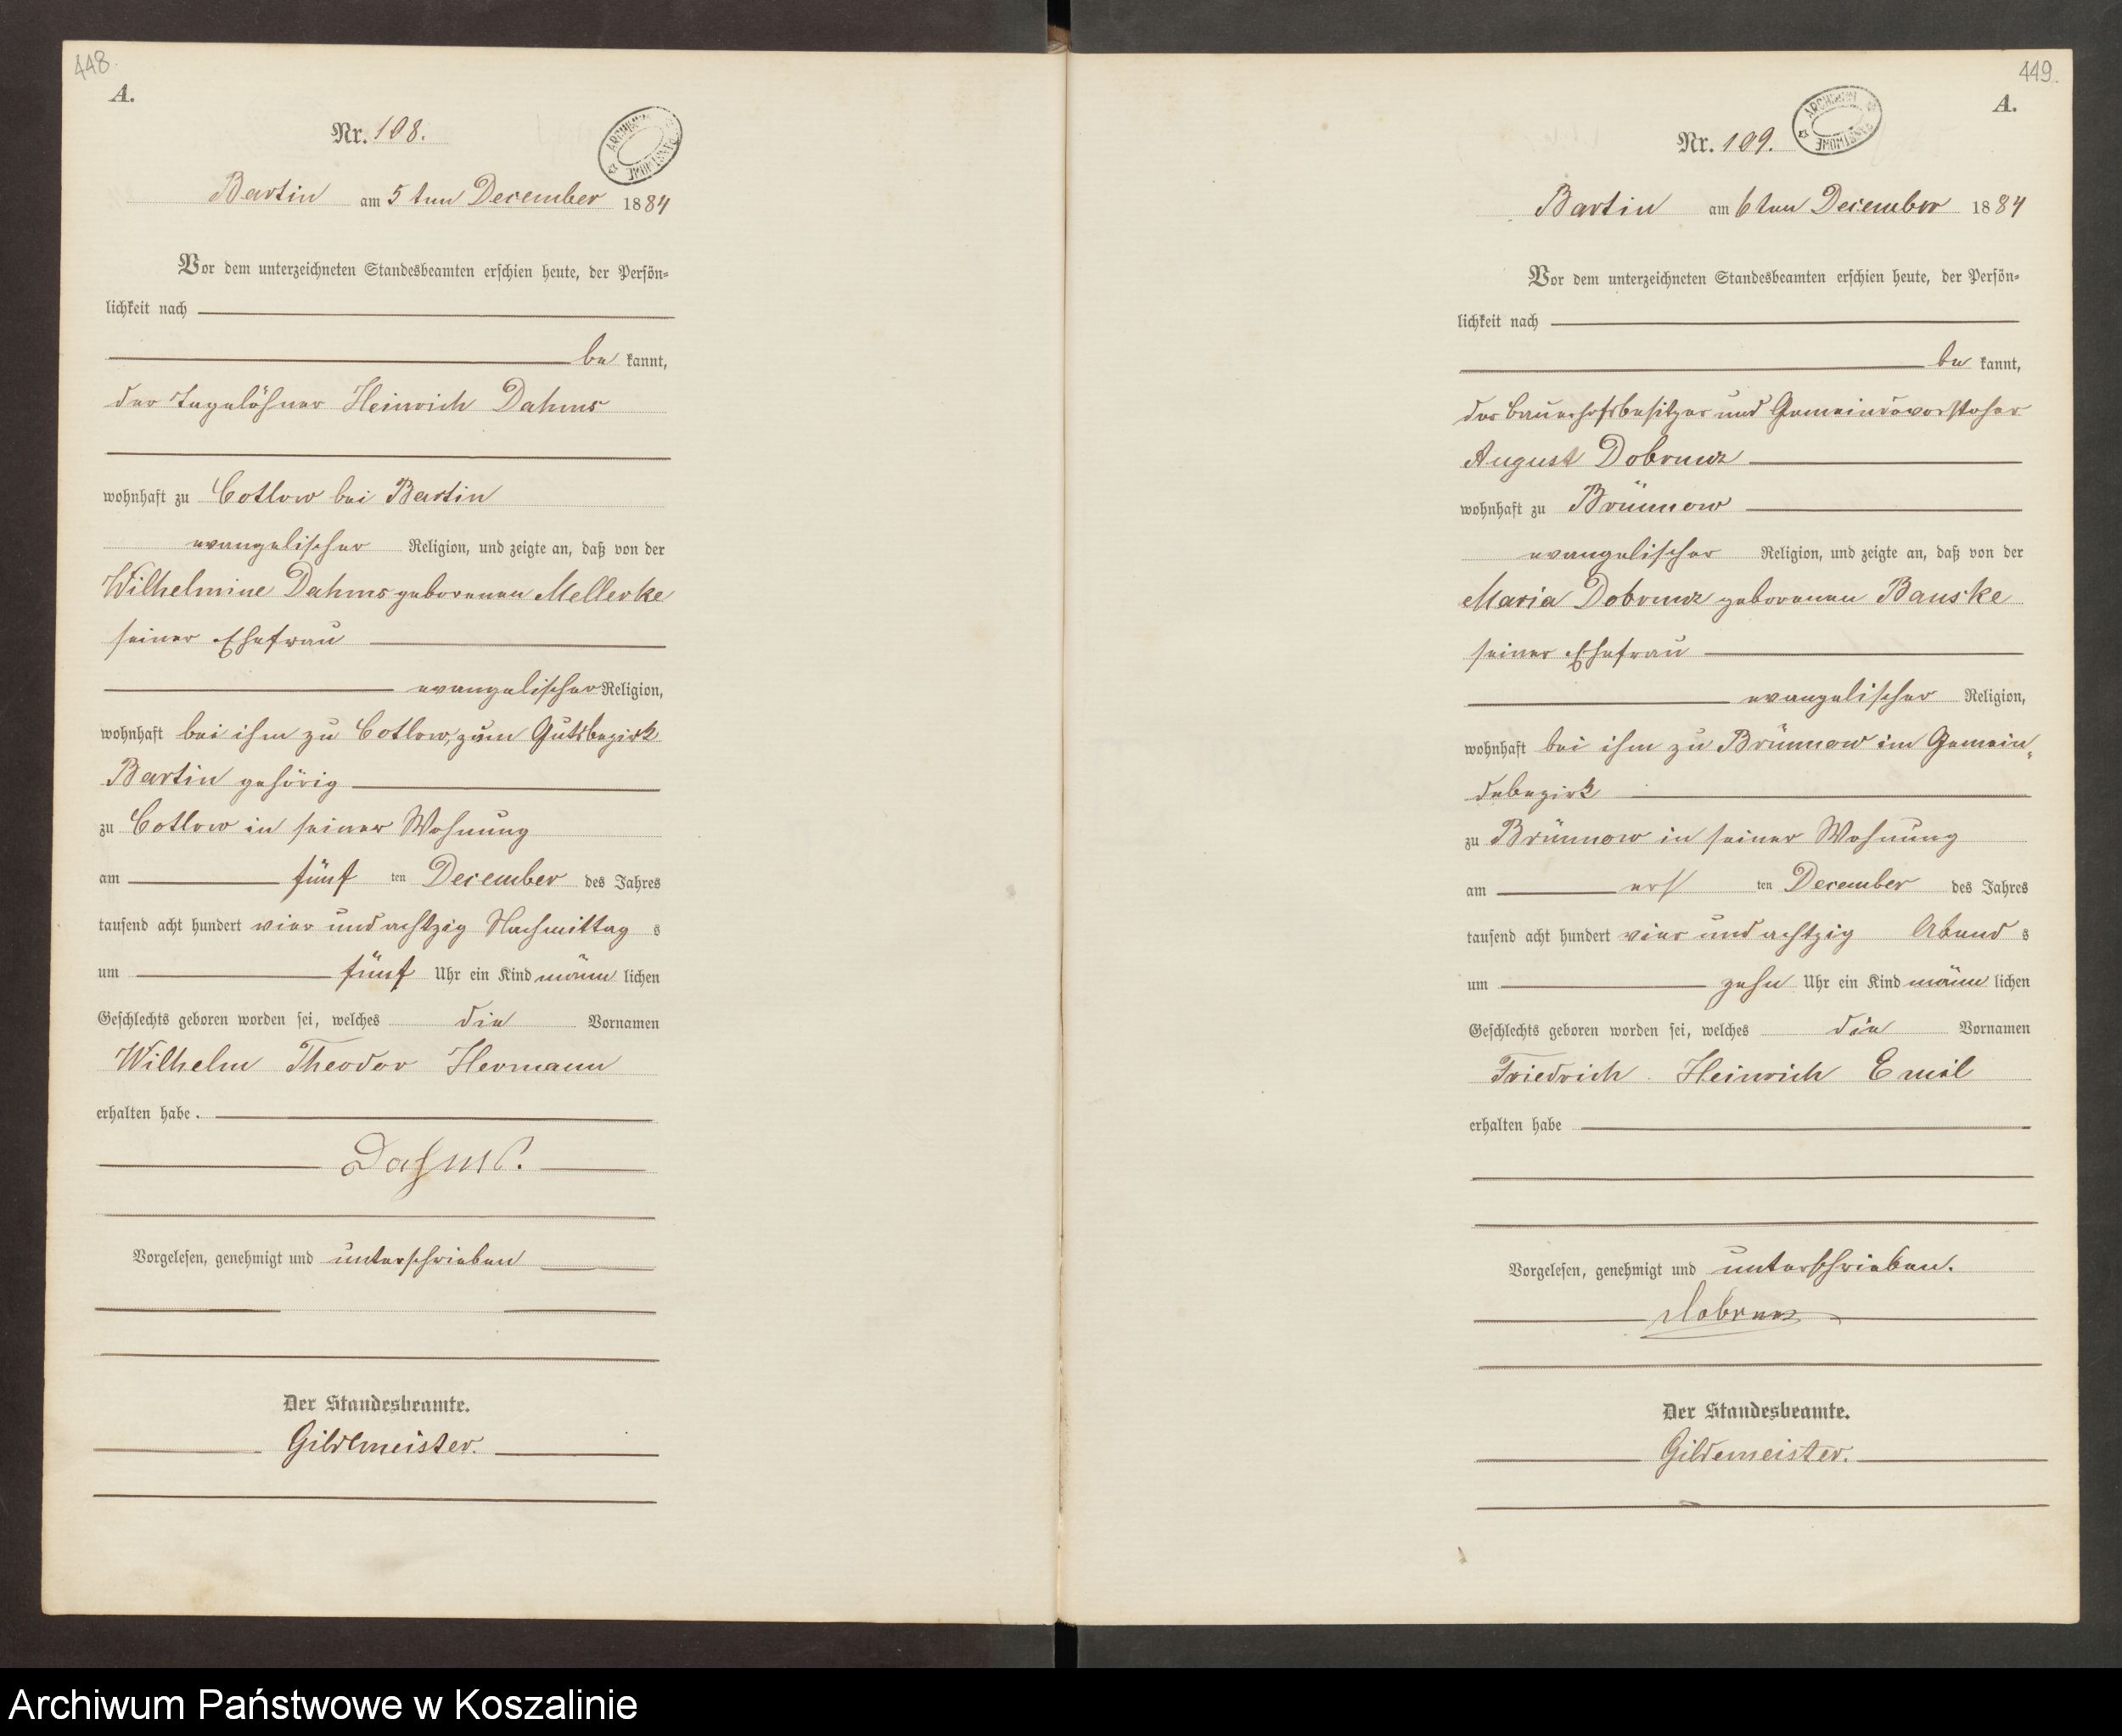 448.
A.
Nr. 108.
ARCHIWUM PAŃSTWOWE
Bartin am 5 ten December 1884
Vor dem unterzeichneten Standesbeamten erschien heute, der Persön-
lichkeit nach
be kannt,
der Tagelöhner Heinrich Dahms
wohnhaft zu Cotlow bei Bartin
evangelischer Religion, und zeigte an, daß von der
Wilhelmine Dahms geborenen Mellerke
seiner Ehefrau
evangelischer Religion,
wohnhaft bei ihm zu Cotlow, zum Gutsbezirk
Bartin gehörig
zu Cotlow in seiner Wohnung
am fünf ten December des Jahres
tausend acht hundert vier und achtzig Nachmittag s
um fünf Uhr ein Kind männ lichen
Geschlechts geboren worden sei, welches die Vornamen
Wilhelm Theodor Hermann
erhalten habe.
Dahms.
Vorgelesen, genehmigt und unterschrieben
Der Standesbeamte.
Gildemeister.
449.
A.
Nr. 109.
ARCHIWUM PAŃSTWOWE
Bartin am 6 ten December 1884
Vor dem unterzeichneten Standesbeamten erschien heute, der Persön-
lichkeit nach
be kannt,
der Bauerhofsbesitzer und Gemeindevorsteher
August Dobrunz
wohnhaft zu Brünnow
evangelischer Religion, und zeigte an, daß von der
Maria Dobrunz geborenen Banske
seiner Ehefrau
evangelischer Religion,
wohnhaft bei ihm zu Brünnow im Gemein-
debezirk
zu Brünnow in seiner Wohnung
am ers ten December des Jahres
tausend acht hundert vier und achtzig Abend s
um zehn Uhr ein Kind männ lichen
Geschlechts geboren worden sei, welches die Vornamen
Friedrich Heinrich Emil
erhalten habe
Vorgelesen, genehmigt und unterschrieben.
Dobrunz
Der Standesbeamte.
Gildemeister.
Archiwum Państwowe w Koszalinie